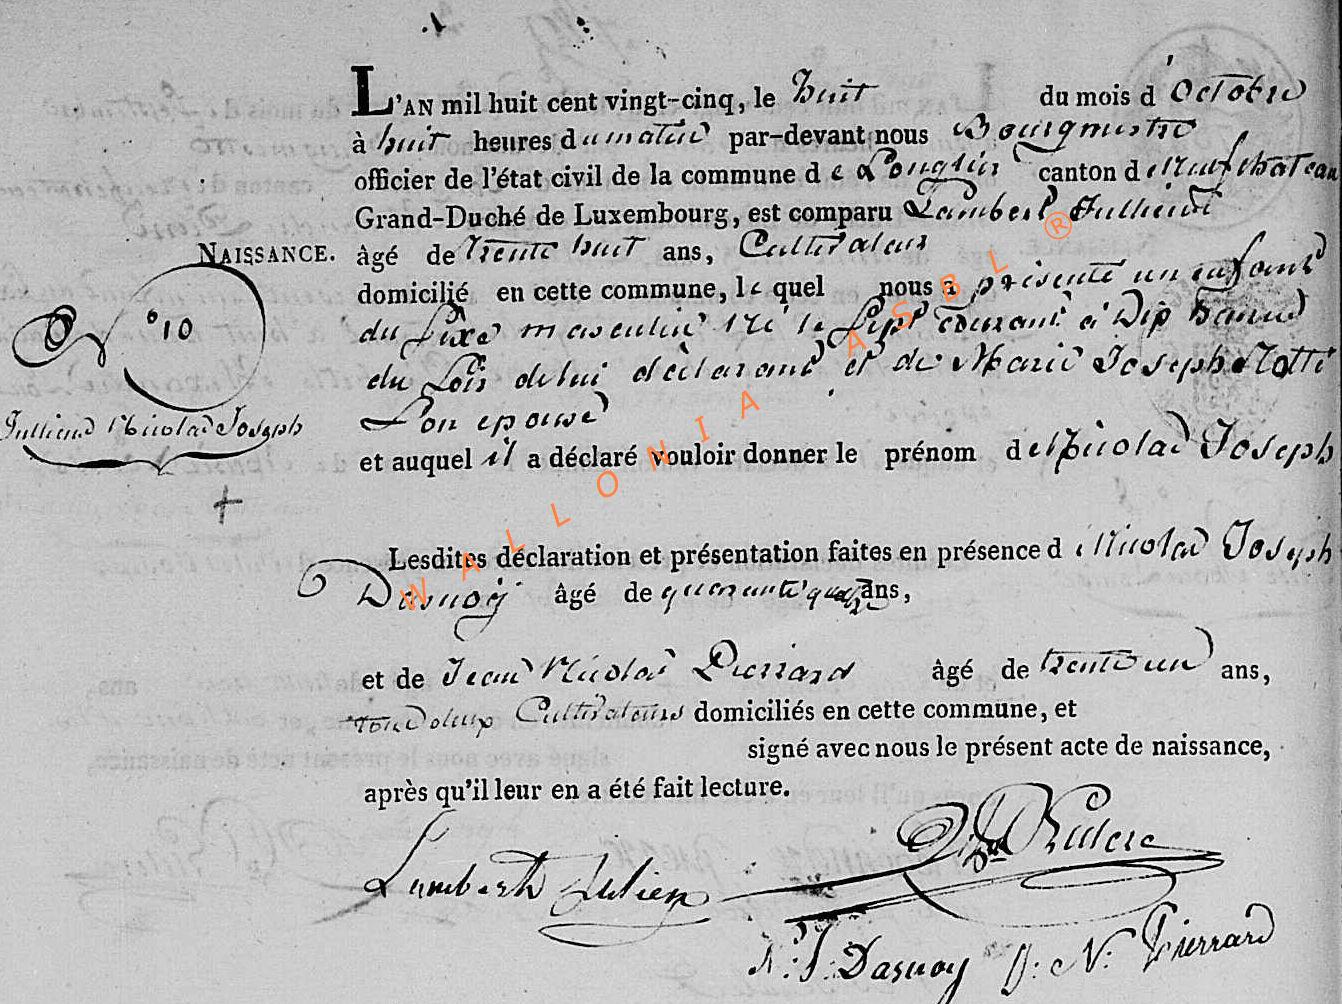 L'AN mil huit cent vingt-cinq, le huit du mois d'Octobre
à huit heures du matin par-devant nous Bourgmestre
officier de l'état civil de la commune de Longlier canton de Neufchateau
Grand-Duché de Luxembourg, est comparu Lambert Jullien
NAISSANCE.
âgé de trente huit ans, Cultivateur
domicilié en cette commune, le quel nous a présenté un enfant
N° 10
du sixe masculin né le sept courant à dix heures
du soir de lui déclarant et de Marie Joseph
Jullien Nicolas Joseph
son epouse
et auquel il a déclaré vouloir donner le prénom de Nicolas Joseph
Lesdites déclaration et présentation faites en présence de Nicolas Joseph
Dasnoy âgé de quarante ans,
et de Jean Nicolas Pierrard âgé de trente un ans,
tous deux Cultivateurs domiciliés en cette commune, et
signé avec nous le présent acte de naissance,
après qu'il leur en a été fait lecture.
Lambert Julien
N: J: Dasnoy J: N: Pierrard
WALLONIA ASBL ®